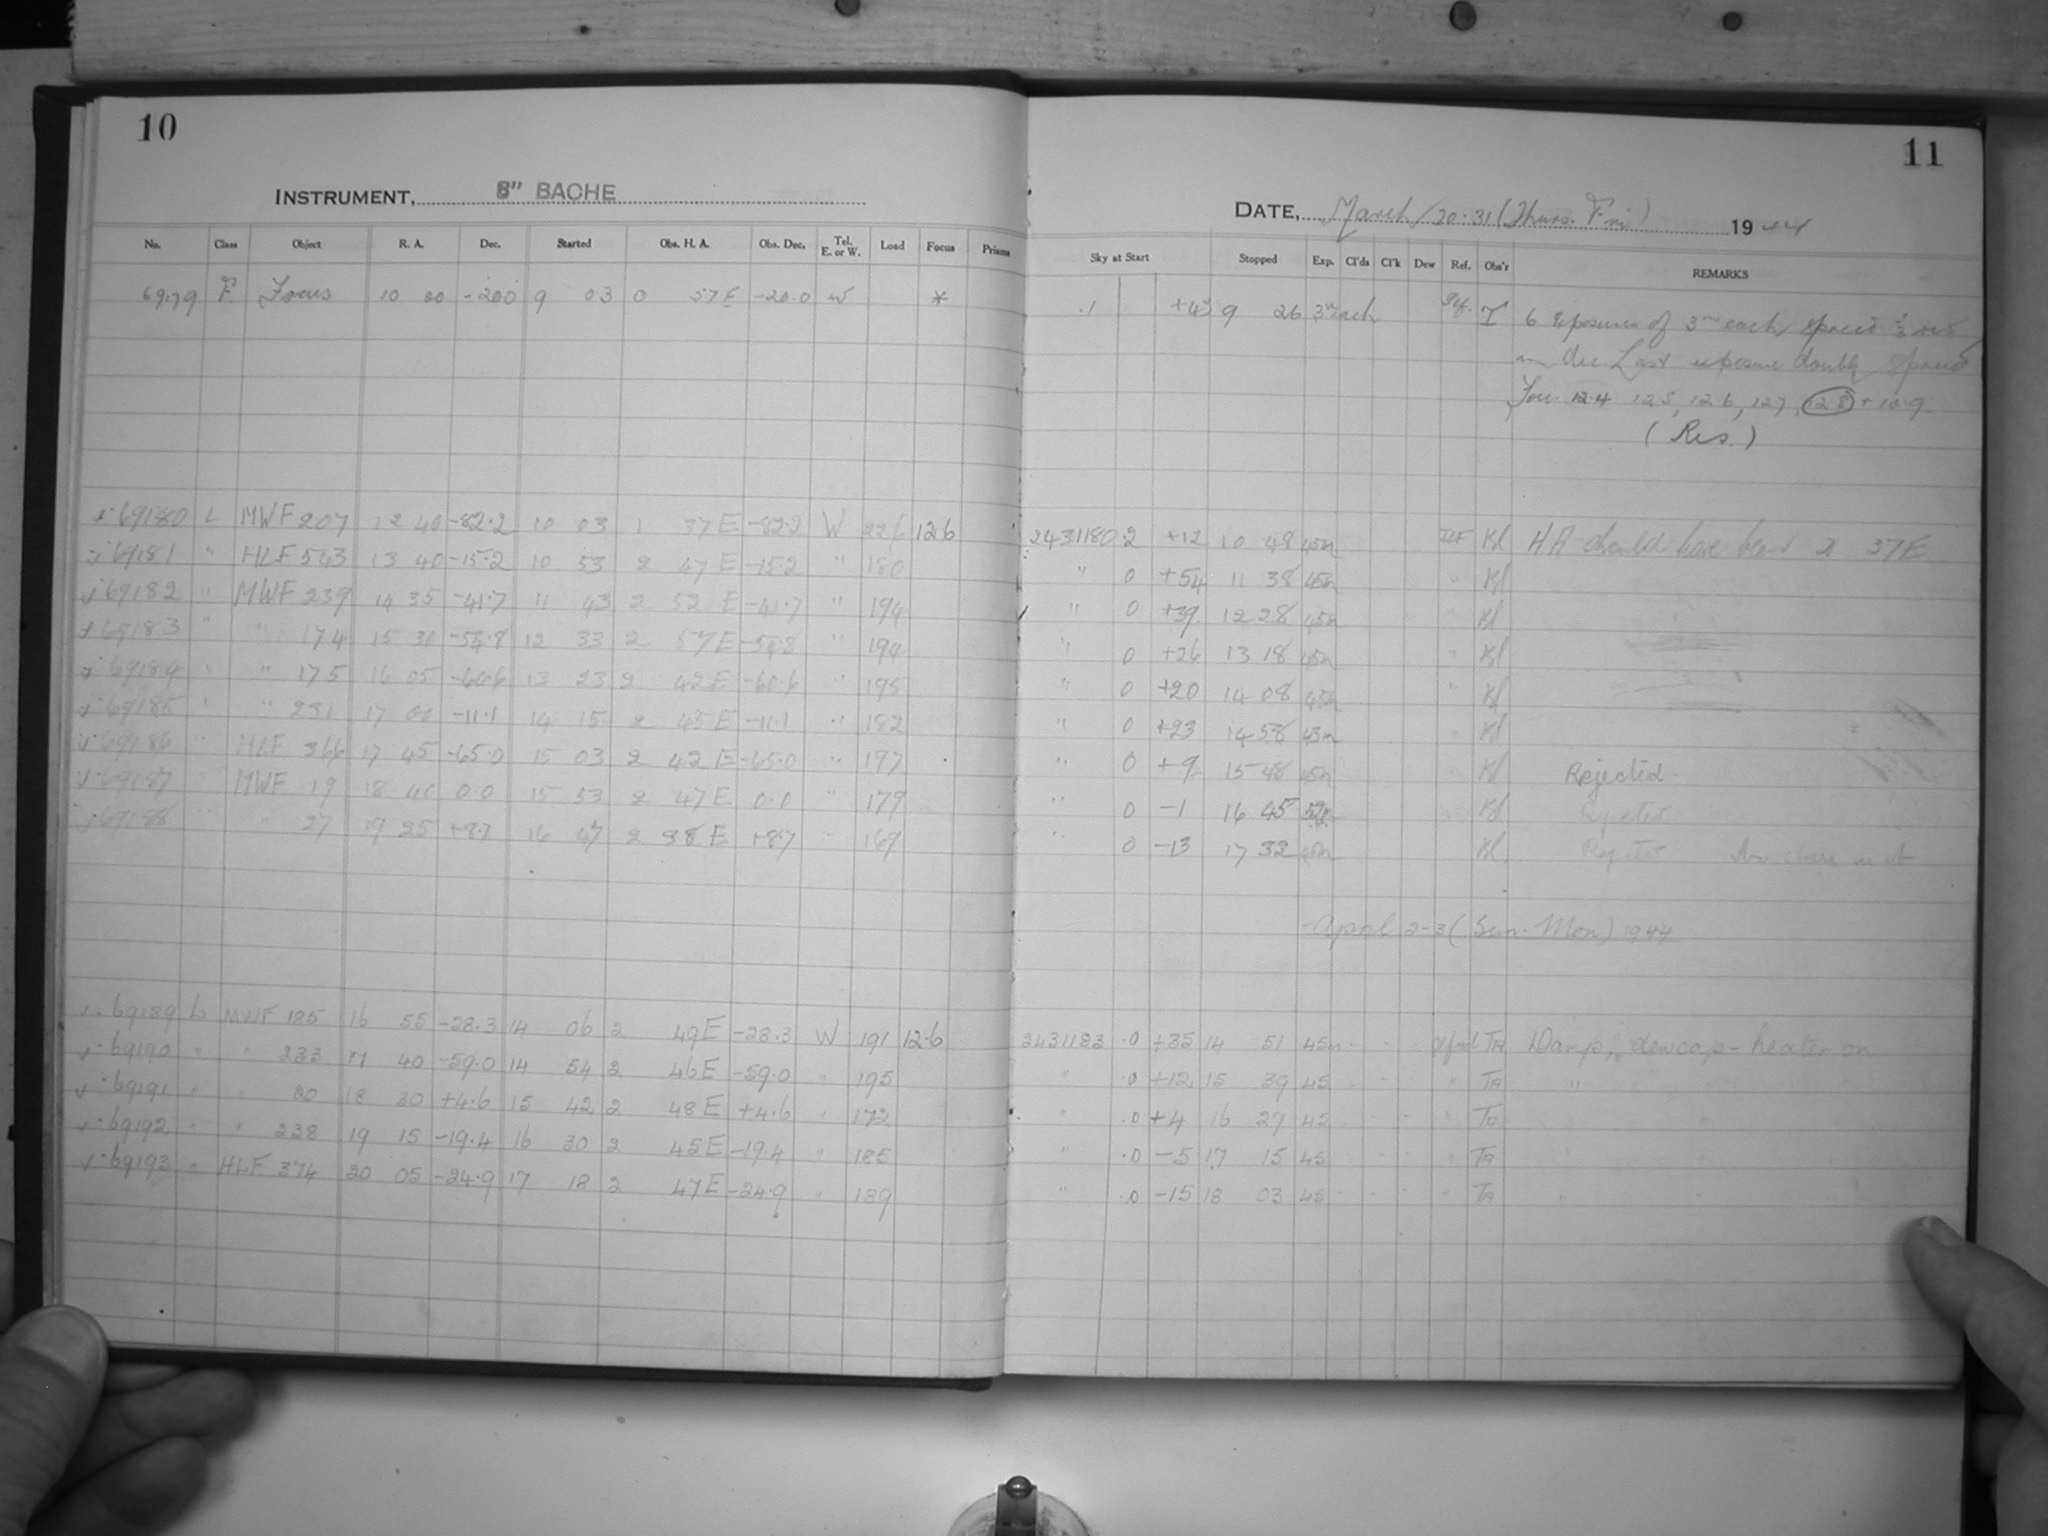 10
11
INSTRUMENT, 8" BACHE
DATE, March 20-31 (Thurs. Fri) 1944
No. Class Object R. A. Dec. Started Obs. H. A. Obs. Dec. Tel. E. or W. Load Focus Prisms Sky at Start Stopped Exp. Cl'ds Cl'k Dew Ref. Obs'r REMARKS
69179 F Focus 10 00 -20.0 9 03 0 57 E -20.0 W * .1 9 26 3m each T 6 Exposures of 3m each spaced
in dec. Last exposure double spaced
Foc. 12.4 12.5, 12.6, 12.7, 12.8 + 12.9
(Res.)
69180 L MWF 207 12 40 -82.2 10 03 1 37 E -82.2 W 226 12.6 2431180.2 +12 10 48 45m Kl HA should have been 2 37E
69181 " HLF 563 13 40 -15.2 10 53 2 47 E -15.2 " 180 " 0 +54 11 38 45m " Kl
69182 " MWF 239 14 35 -41.7 11 43 2 52 E -41.7 " 194 " 0 +39 12 28 45m " Kl
69183 " " 174 15 30 -54.8 12 33 2 57 E -54.8 " 194 " 0 +26 13 18 45m " Kl
69184 " " 175 16 05 -60.6 13 23 2 42 E -60.6 " 195 " 0 +20 14 08 45m " Kl
69185 " " 231 17 00 -11.1 14 15 2 45 E -11.1 " 182 " 0 +23 14 58 43m " Kl
69186 " HLF 366 17 45 -65.0 15 03 2 42 E -65.0 " 197 " 0 +9 15 48 45m " Kl Rejected
69187 " MWF 19 18 40 0.0 15 53 2 47 E 0.0 " 179 " 0 -1 16 45 52m Kl Rejected
69188 " " 27 19 25 +8.7 16 47 2 38 E +8.7 " 169 " 0 -13 17 32 45m Kl
April 2-3 (Sun-Mon) 1944
69189 L MWF 185 16 55 -28.3 14 06 2 49 E -28.3 W 191 12.6 2431183 .0 +35 14 51 45m TA Damp, dewcap-heater on
69190 " " 233 17 40 -59.0 14 54 2 46 E -59.0 " 195 " .0 +12 15 39 45 " TA "
69191 " " 80 18 30 +4.6 15 42 2 48 E +4.6 " 172 " .0 +4 16 27 45 " TA " "
69192 " " 238 19 15 -19.4 16 30 2 45 E -19.4 " 185 " .0 -5 17 15 45 " TA " "
69193 " HLF 374 20 05 -24.9 17 18 2 47 E -24.9 " 189 " .0 -15 18 03 45 " TA " "